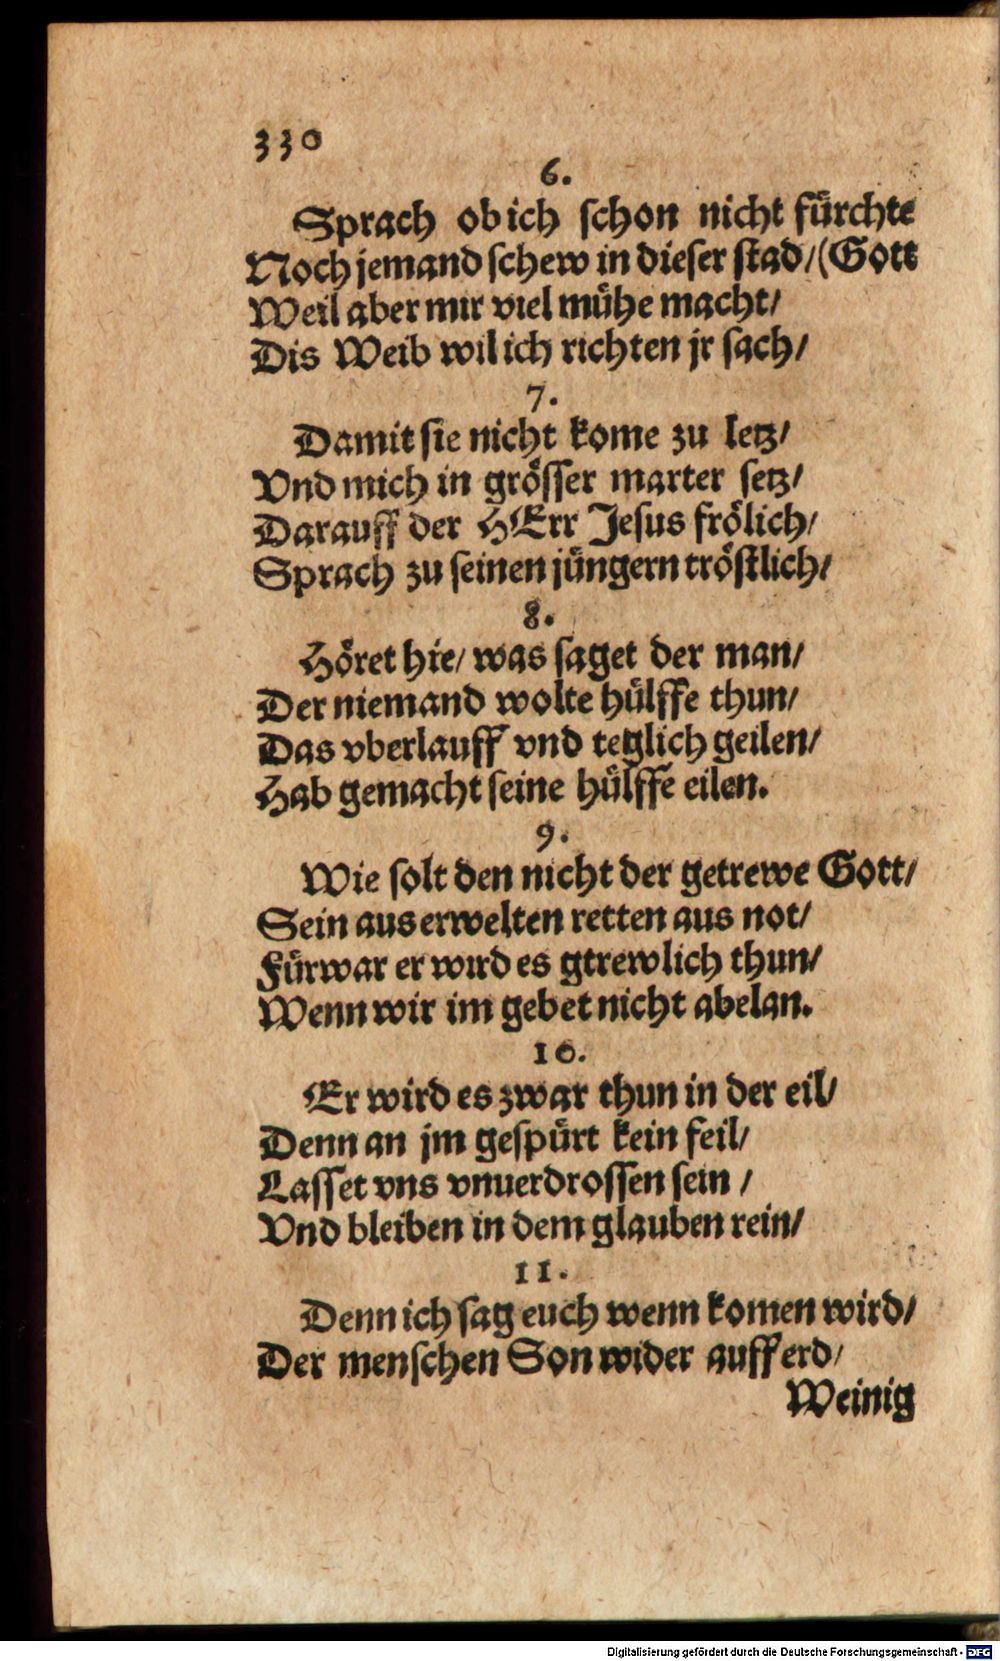 330
6.
Sprach ob ich schon nicht fürchte
Noch jemand schew in dieser stad/(Gott
Weil aber mir viel mühe macht/
Dis Weib wil ich richten jr sach/
7.
Damit sie nicht kome zu letz/
Vnd mich in grösser marter setz/
Darauff der HErr Jesus frölich/
Sprach zu seinen jüngern tröstlich/
8.
Höret hie/ was saget der man/
Der niemand wolte hülffe thun/
Das vberlauff vnd teglich geilen/
Hab gemacht seine hülffe eilen.
9.
Wie solt den nicht der getrewe Gott/
Sein auserwelten retten aus not/
Fürwar er wird es gtrewlich thun/
Wenn wir im gebet nicht abelan.
10.
Er wird es zwar thun in der eil/
Denn an jm gespürt kein feil/
Lasset vns vnuerdrossen sein /
Vnd bleiben in dem glauben rein/
11.
Denn ich sag euch wenn komen wird/
Der menschen Son wider auff erd/
Weinig
Digitalisierung gefördert durch die Deutsche Forschungsgemeinschaft - DFG